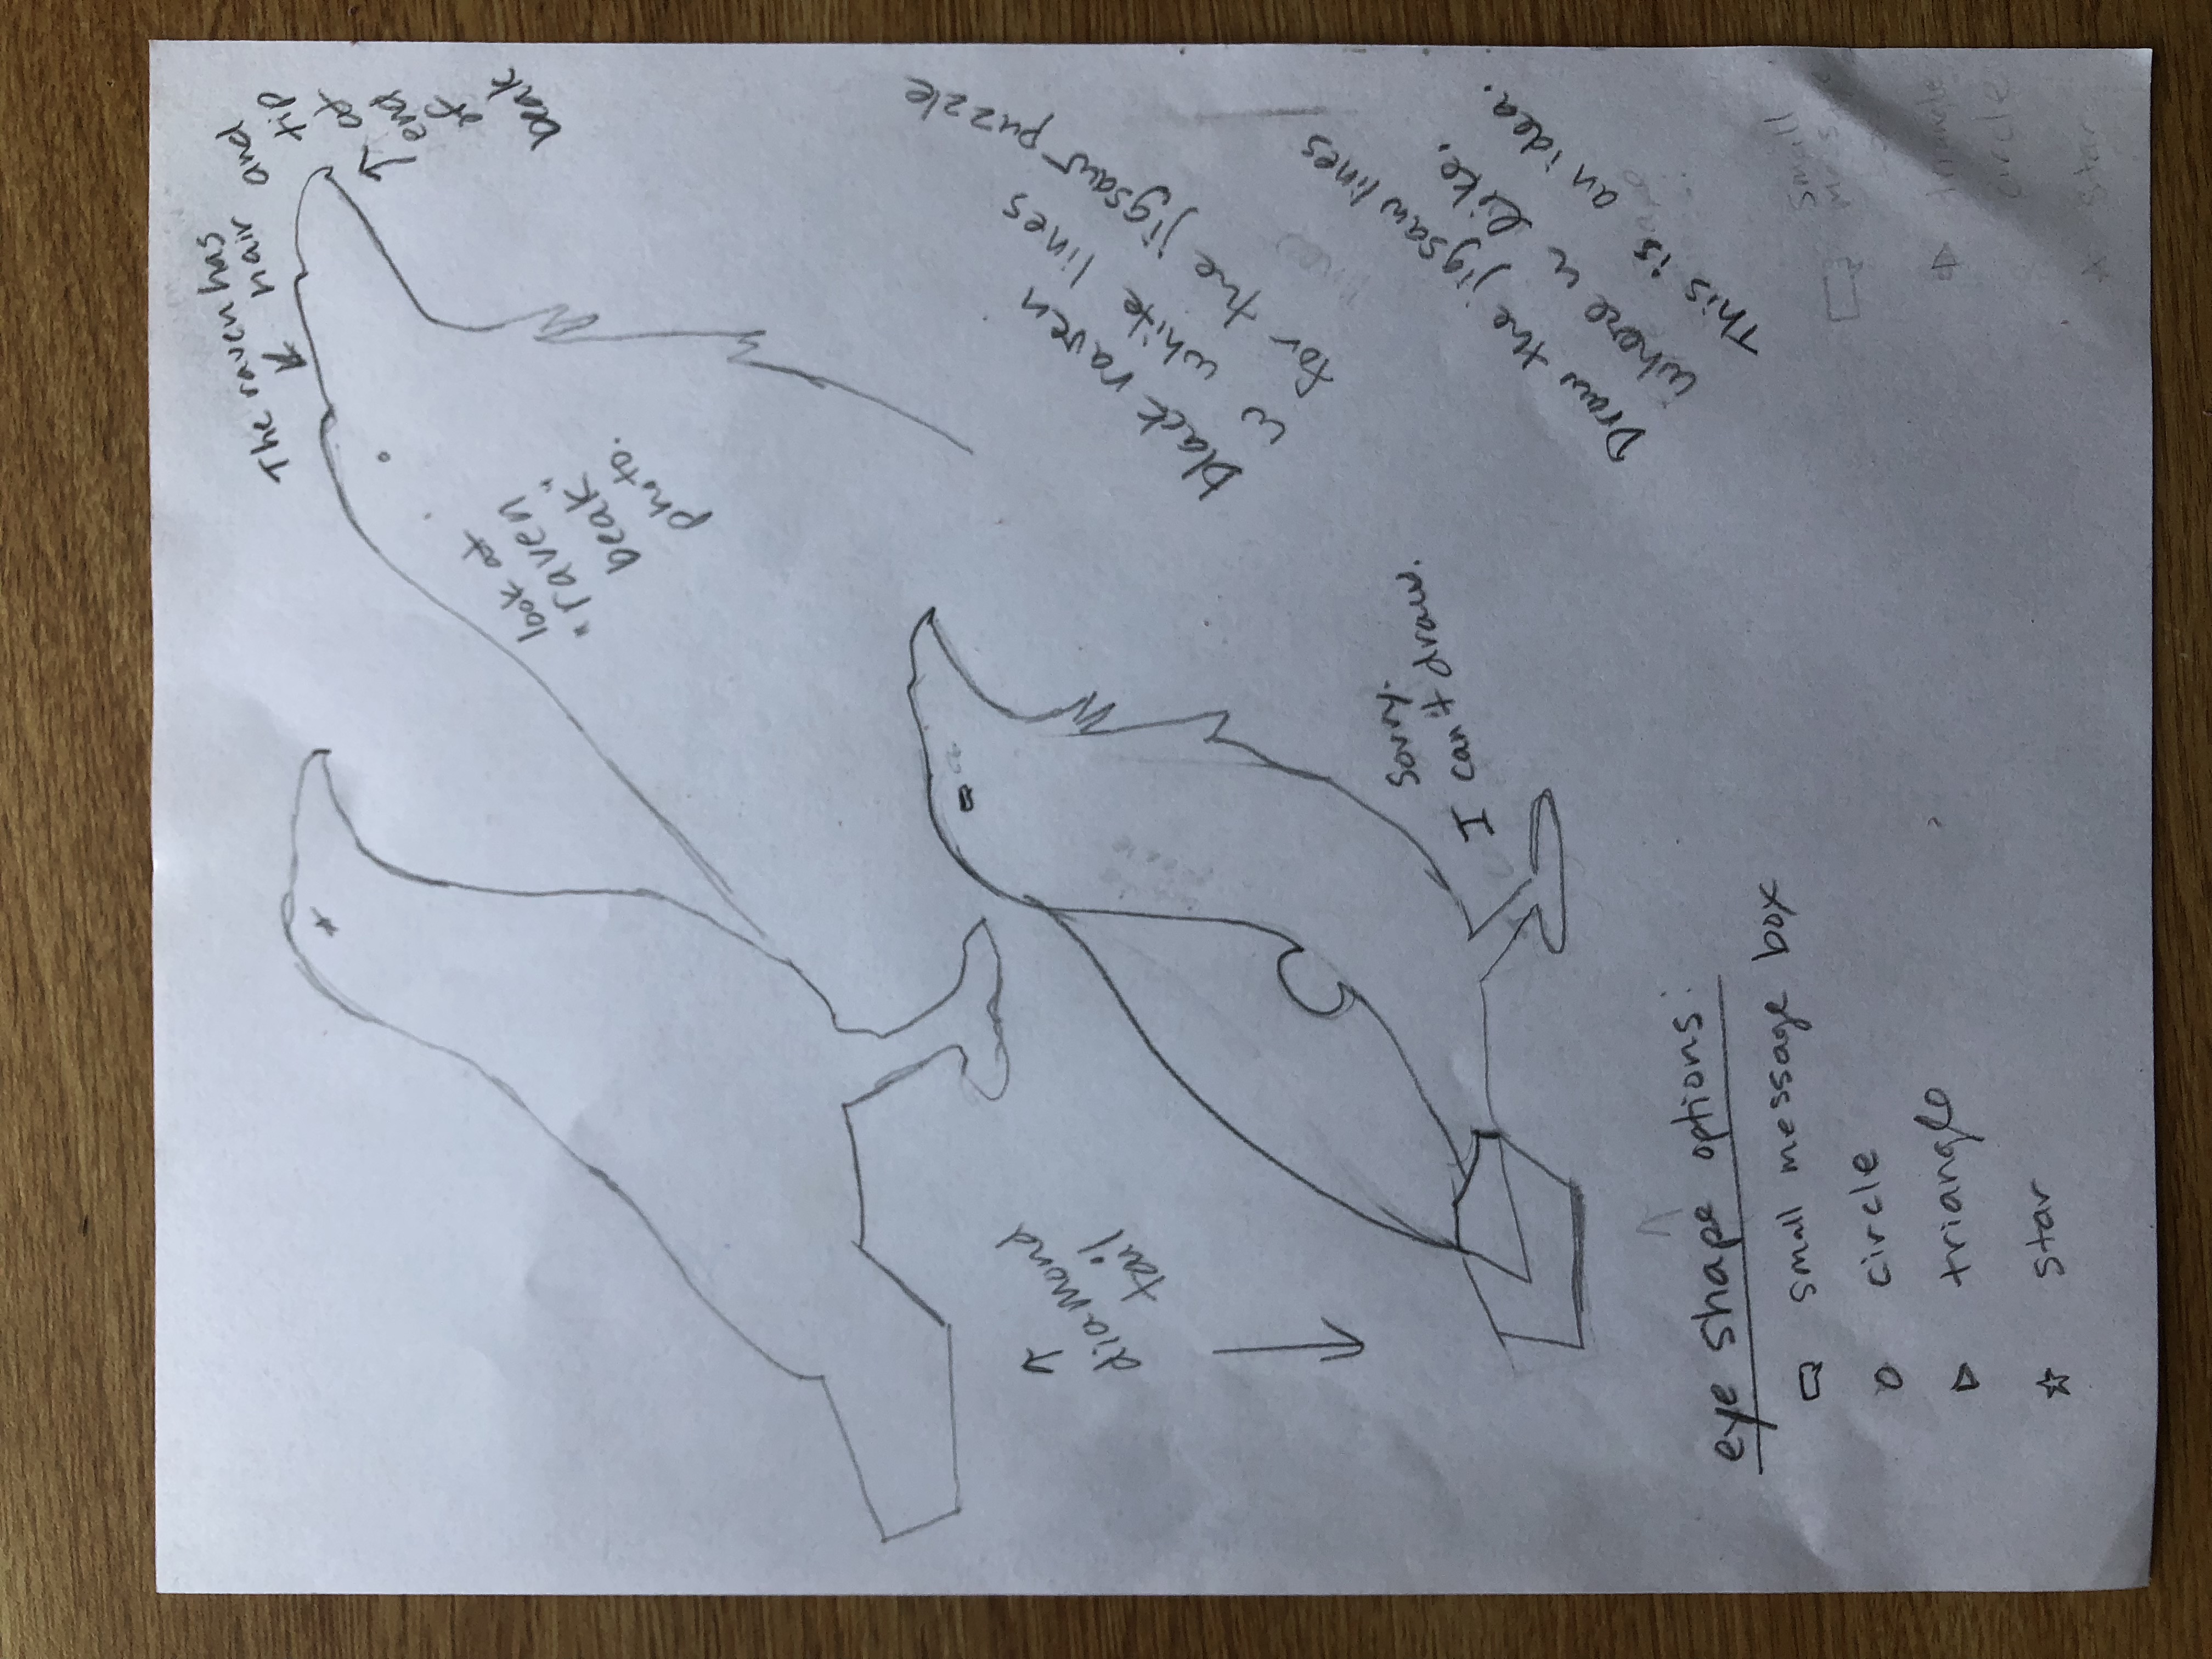 The raven has
hair and
tip
at
end
of
beak
look at
"raven
beak"
photo.
black raven
w white lines
for the jigsaw puzzle
Draw the jigsaw lines
where u like.
This is an idea.
Sorry.
I can't draw.
diamond
tail
eye shape options:
small message box
circle
triangle
star
small
circle
star